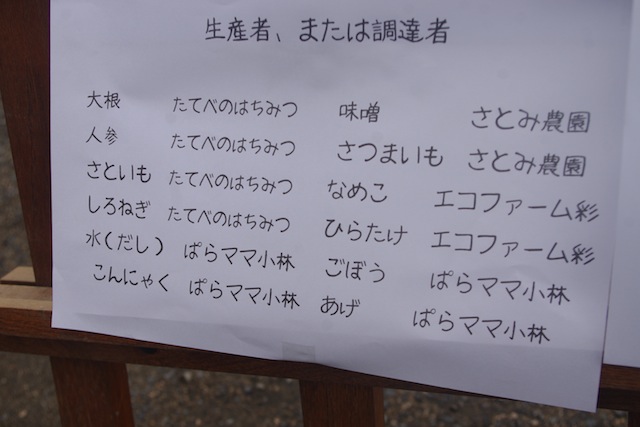 生産者、または調達者
大根 たてべのはちみつ
人参 たてべのはちみつ
さといも たてべのはちみつ
しろねぎ たてべのはちみつ
水(だし) ぱらママ小林
こんにゃく ぱらママ小林
味噌 さとみ農園
さつまいも さとみ農園
なめこ エコファーム彩
ひらたけ エコファーム彩
ごぼう ぱらママ小林
あげ ぱらママ小林